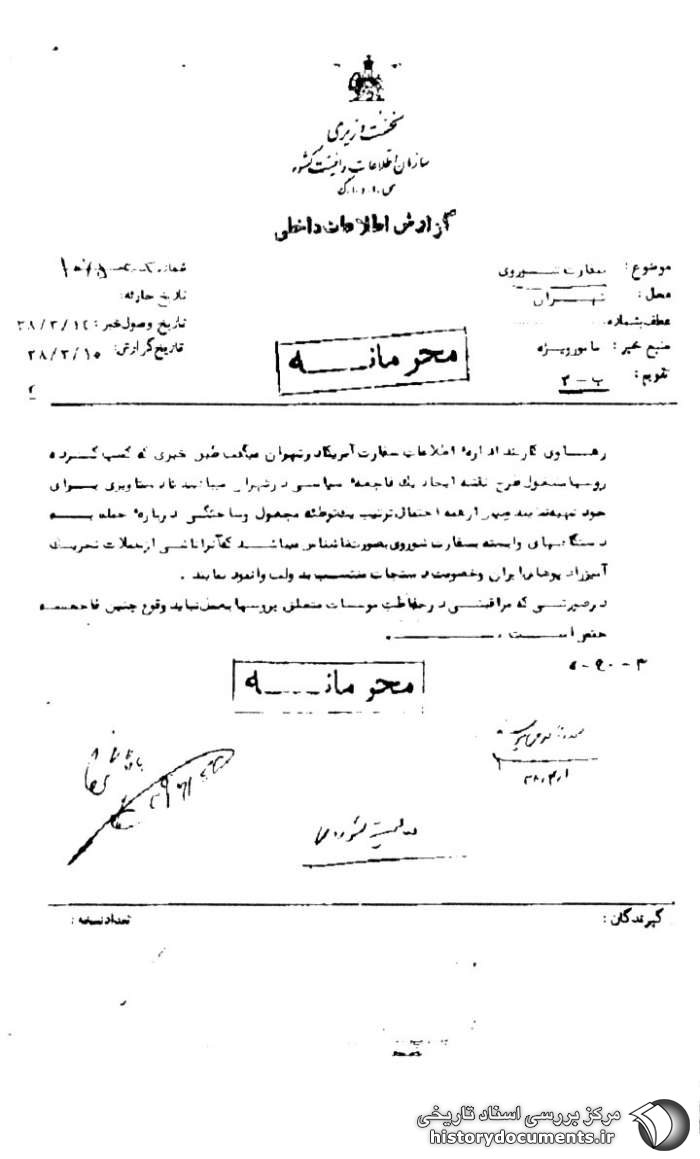 نخست وزیری
سازمان اطلاعات و امنیت کشور
س.ا.و.ا.ک
گزارش اطلاعات داخلی
موضوع: سفارت شوروی
محل: تهران
عطف بشماره
منبع خبر: مامور ویژه
تقویم: ب - ۳
شماره
تاریخ حادثه:
تاریخ وصول خبر: ۳۸/۳/۱۴
تاریخ گزارش: ۳۸/۳/۱۵
۲
محرمانه
کارمند اداره اطلاعات سفارت آمریکا در تهران میگفت طبق خبری که کسب کرده
روسها مشغول طرح نقشه ایجاد یک فاجعه سیاسی در تهران میباشند تا دستاویزی برای
خود تهیه نمایند احتمال ترتیب یک توطئه مجعول و ساختگی درباره حمله به
دستگاههای وابسته بسفارت شوروی بصورت ناشناس میباشد که آنرا ناشی از حملات تحریک
آمیز رادیوهای ایران و خصومت دستجات منتسب بدولت وانمود نمایند .
در صورتی که مراقبتی در حفاظت موسسات متعلق بروسها بعمل نیاید وقوع چنین فاجعه
است .
محرمانه
گیرندگان:
تعداد نسخه:
مرکز بررسی اسناد تاریخی
historydocuments.ir